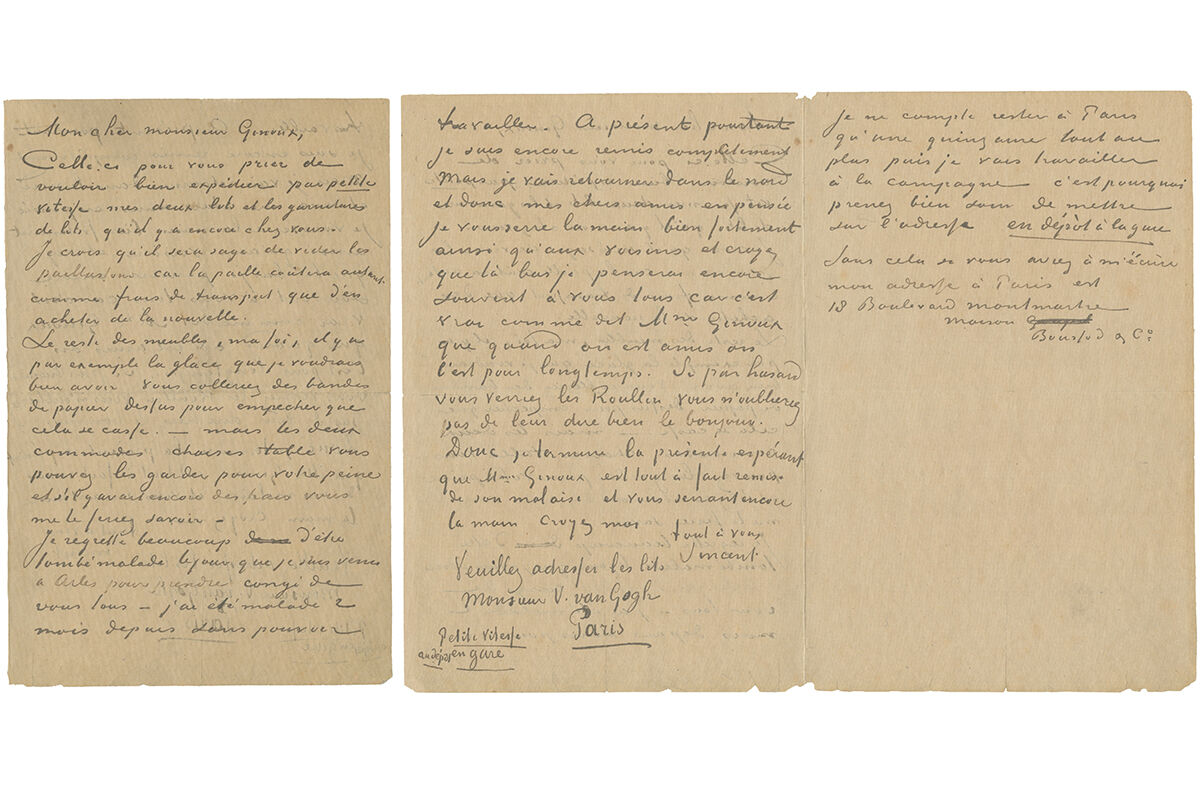 Mon cher monsieur Ginoux,
Celle-ci pour vous prier de
vouloir bien expédier par petite
vitesse mes deux lits et les garnitures
de lits qu'il y a encore chez vous.
Je crois qu'il sera sage de vider les
paillassons car la paille coûtera autant
comme frais de transport que d'en
acheter de la nouvelle.
Le reste des meubles, ma foi, il y a
par exemple la glace que je voudrais
bien avoir. Vous colleriez des bandes
de papier dessus pour empecher que
cela se casse. — mais les deux
commodes, chaises table vous
pouvez les garder pour votre peine
et s'il y avait encore des frais vous
me le feriez savoir –
Je regrette beaucoup d'être
tombé malade le jour que je suis venu
à Arles pour prendre congé de
vous tous – j'ai été malade 2
mois depuis sans pouvoir
travailler. A présent pourtant
je suis encore remis complètement
Mais je vais retourner dans le nord
et donc mes chers amis en pensée
je vous serre la main bien fortement
ainsi qu'aux voisins et croyez
que là bas je penserai encore
souvent à vous tous car c'est
vrai comme dit Mme Ginoux
que quand on est amis on
l'est pour longtemps. Si par hasard
vous verriez les Roullin vous n'oublierez
pas de leur dire bien le bonjour.
Donc je termine la présente espérant
que Mme Ginoux est tout à fait remise
de son malaise et vous serrant encore
la main croyez moi
tout à vous
Vincent.
Veuillez adresser les lits
Monsieur V. van Gogh
Paris
Petite vitesse
au dépôt en gare
Je ne compte rester à Paris
qu'une quinzaine tout au
plus puis je vais travailler
à la campagne c'est pourquoi
prenez bien soin de mettre
sur l'adresse en dépôt à la gare
Sans cela si vous avez à m'écrire
mon adresse à Paris est
18 Boulevard montmartre
maison
Boussod & Co.